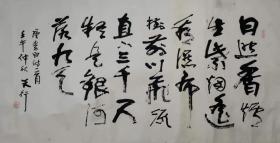 日照香爐
生紫烟遥
看瀑布
挂前川飛流
直下三千尺
疑是銀河
落九天
唐李白詩一首
壬午仲秋